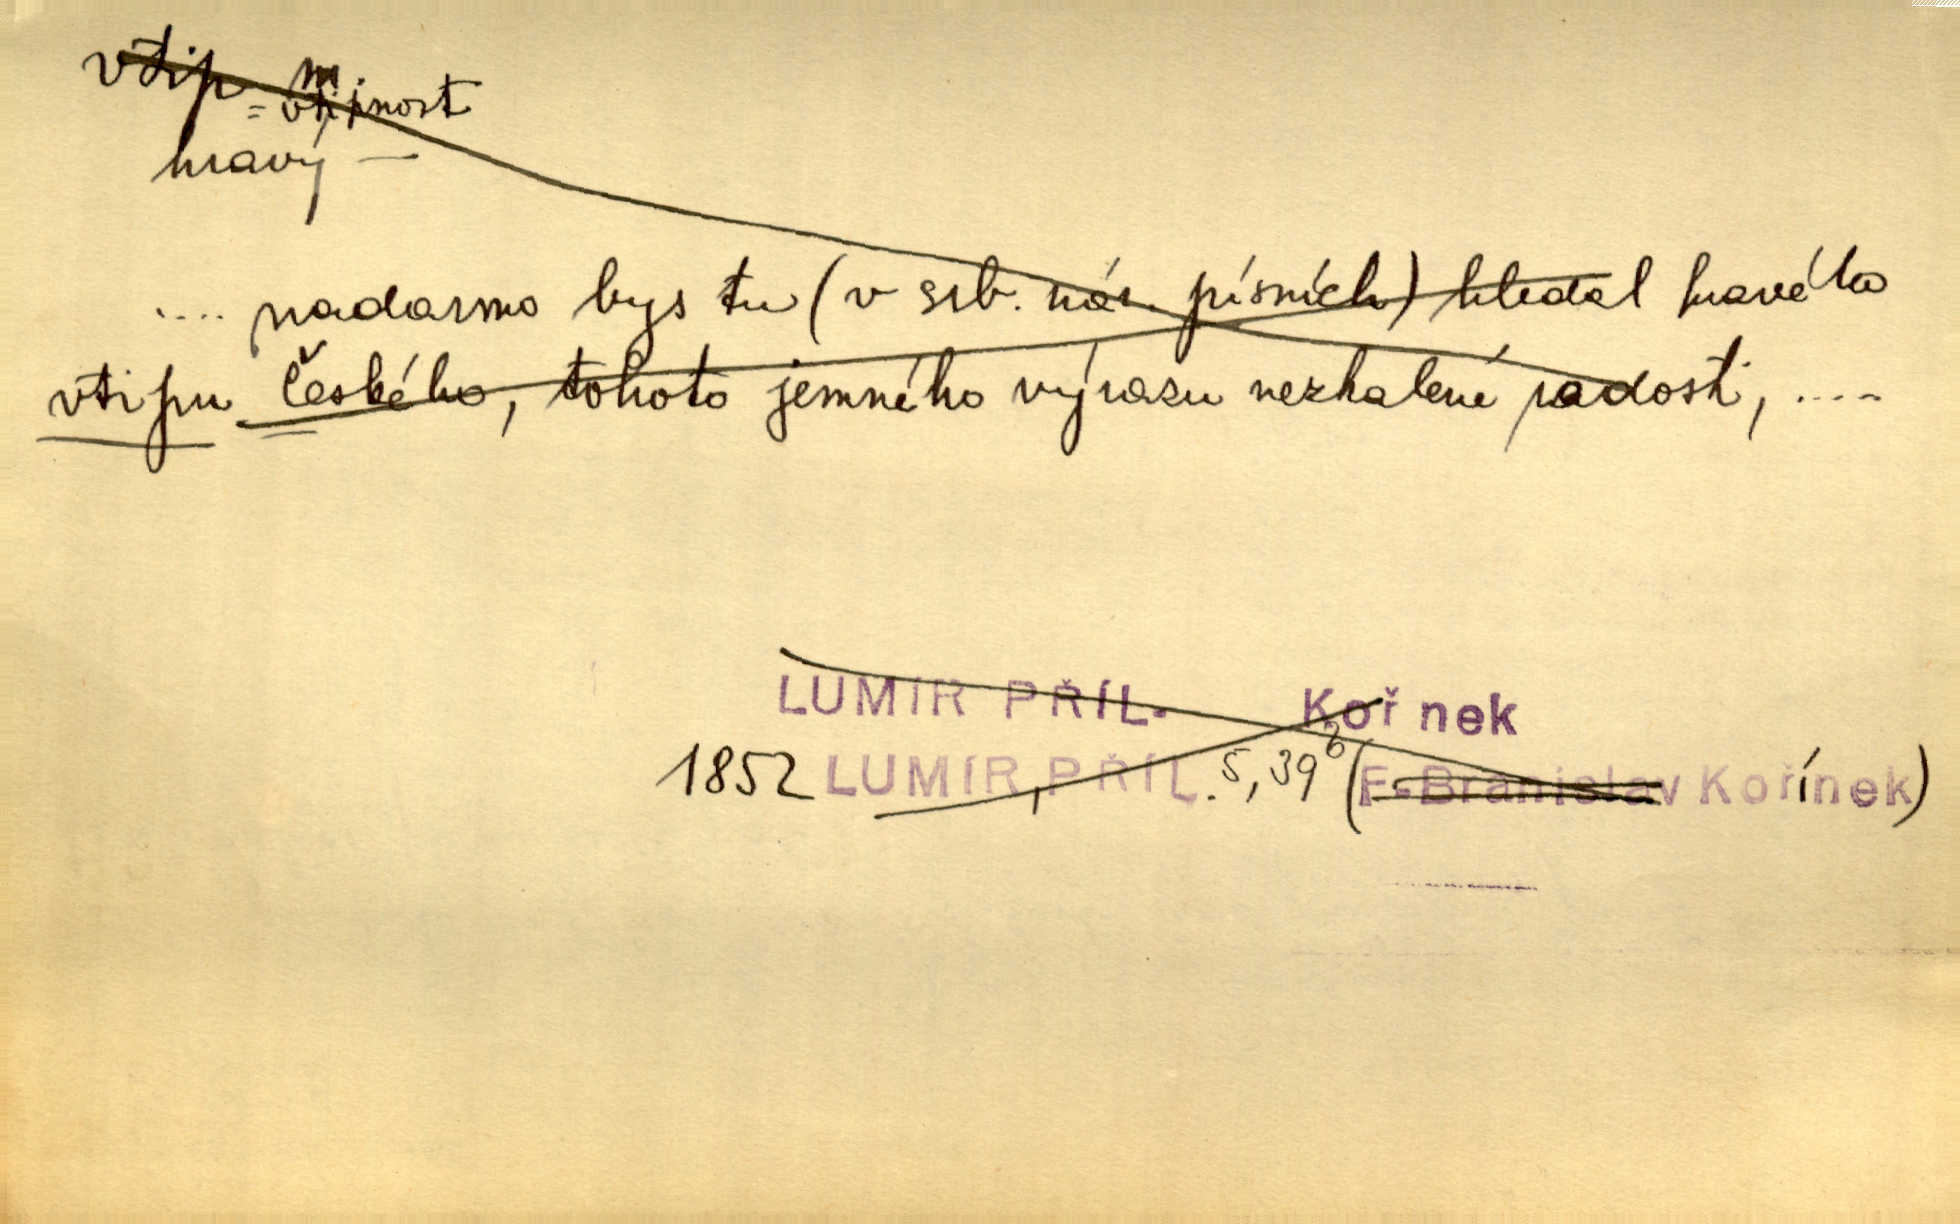 vtip
m
= vtipnost
hravý —
.... nadarmo bys tu (v srb. nár. písních) hledal hravého
vtipu českého, tohoto jemného výrazu nezkalené radosti, ....
LUMÍR PŘÍL. Koř nek
1852 LUMÍR, PŘÍL. 5, 39 b (F. Branislav Kořínek)